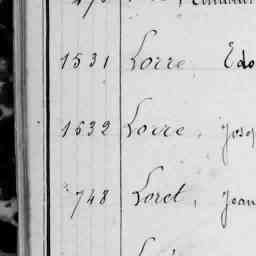 1531 Lorre, Edo
1632 Lorre, Jose
748 Loret, Jean